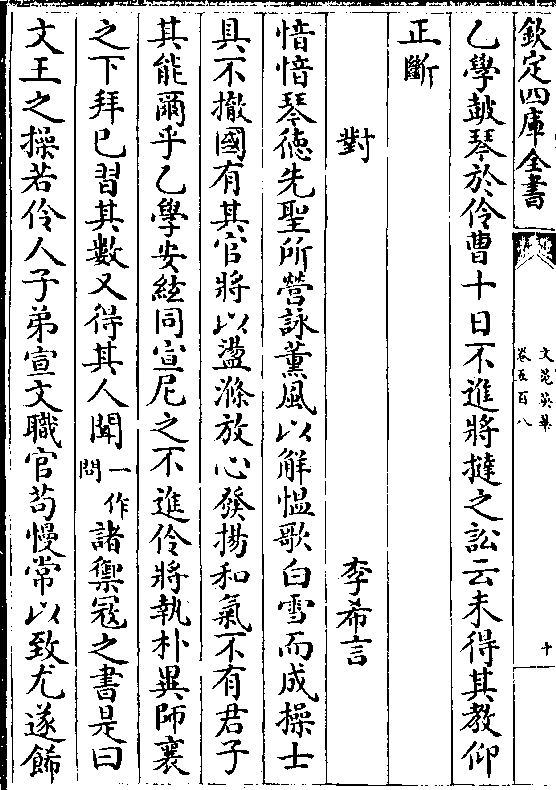 欽定四庫全書
文苑英華
卷五百八
十
乙學鼓琴於伶曹十日不進將撻之訟云未得其教仰
正斷
對 李希言
愔愔琴德先聖所營詠薰風以解慍歌白雪而成操士
具不撤國有其官將以盪滌放心發揚和氣不有君子
其能爾乎乙學安絃同宣尼之不進伶將執朴異師襄
之下拜已習其數又得其人聞一作問諸禦冦之書是曰
文王之操若伶人子弟宣文職官苟慢常以致尤遂餙